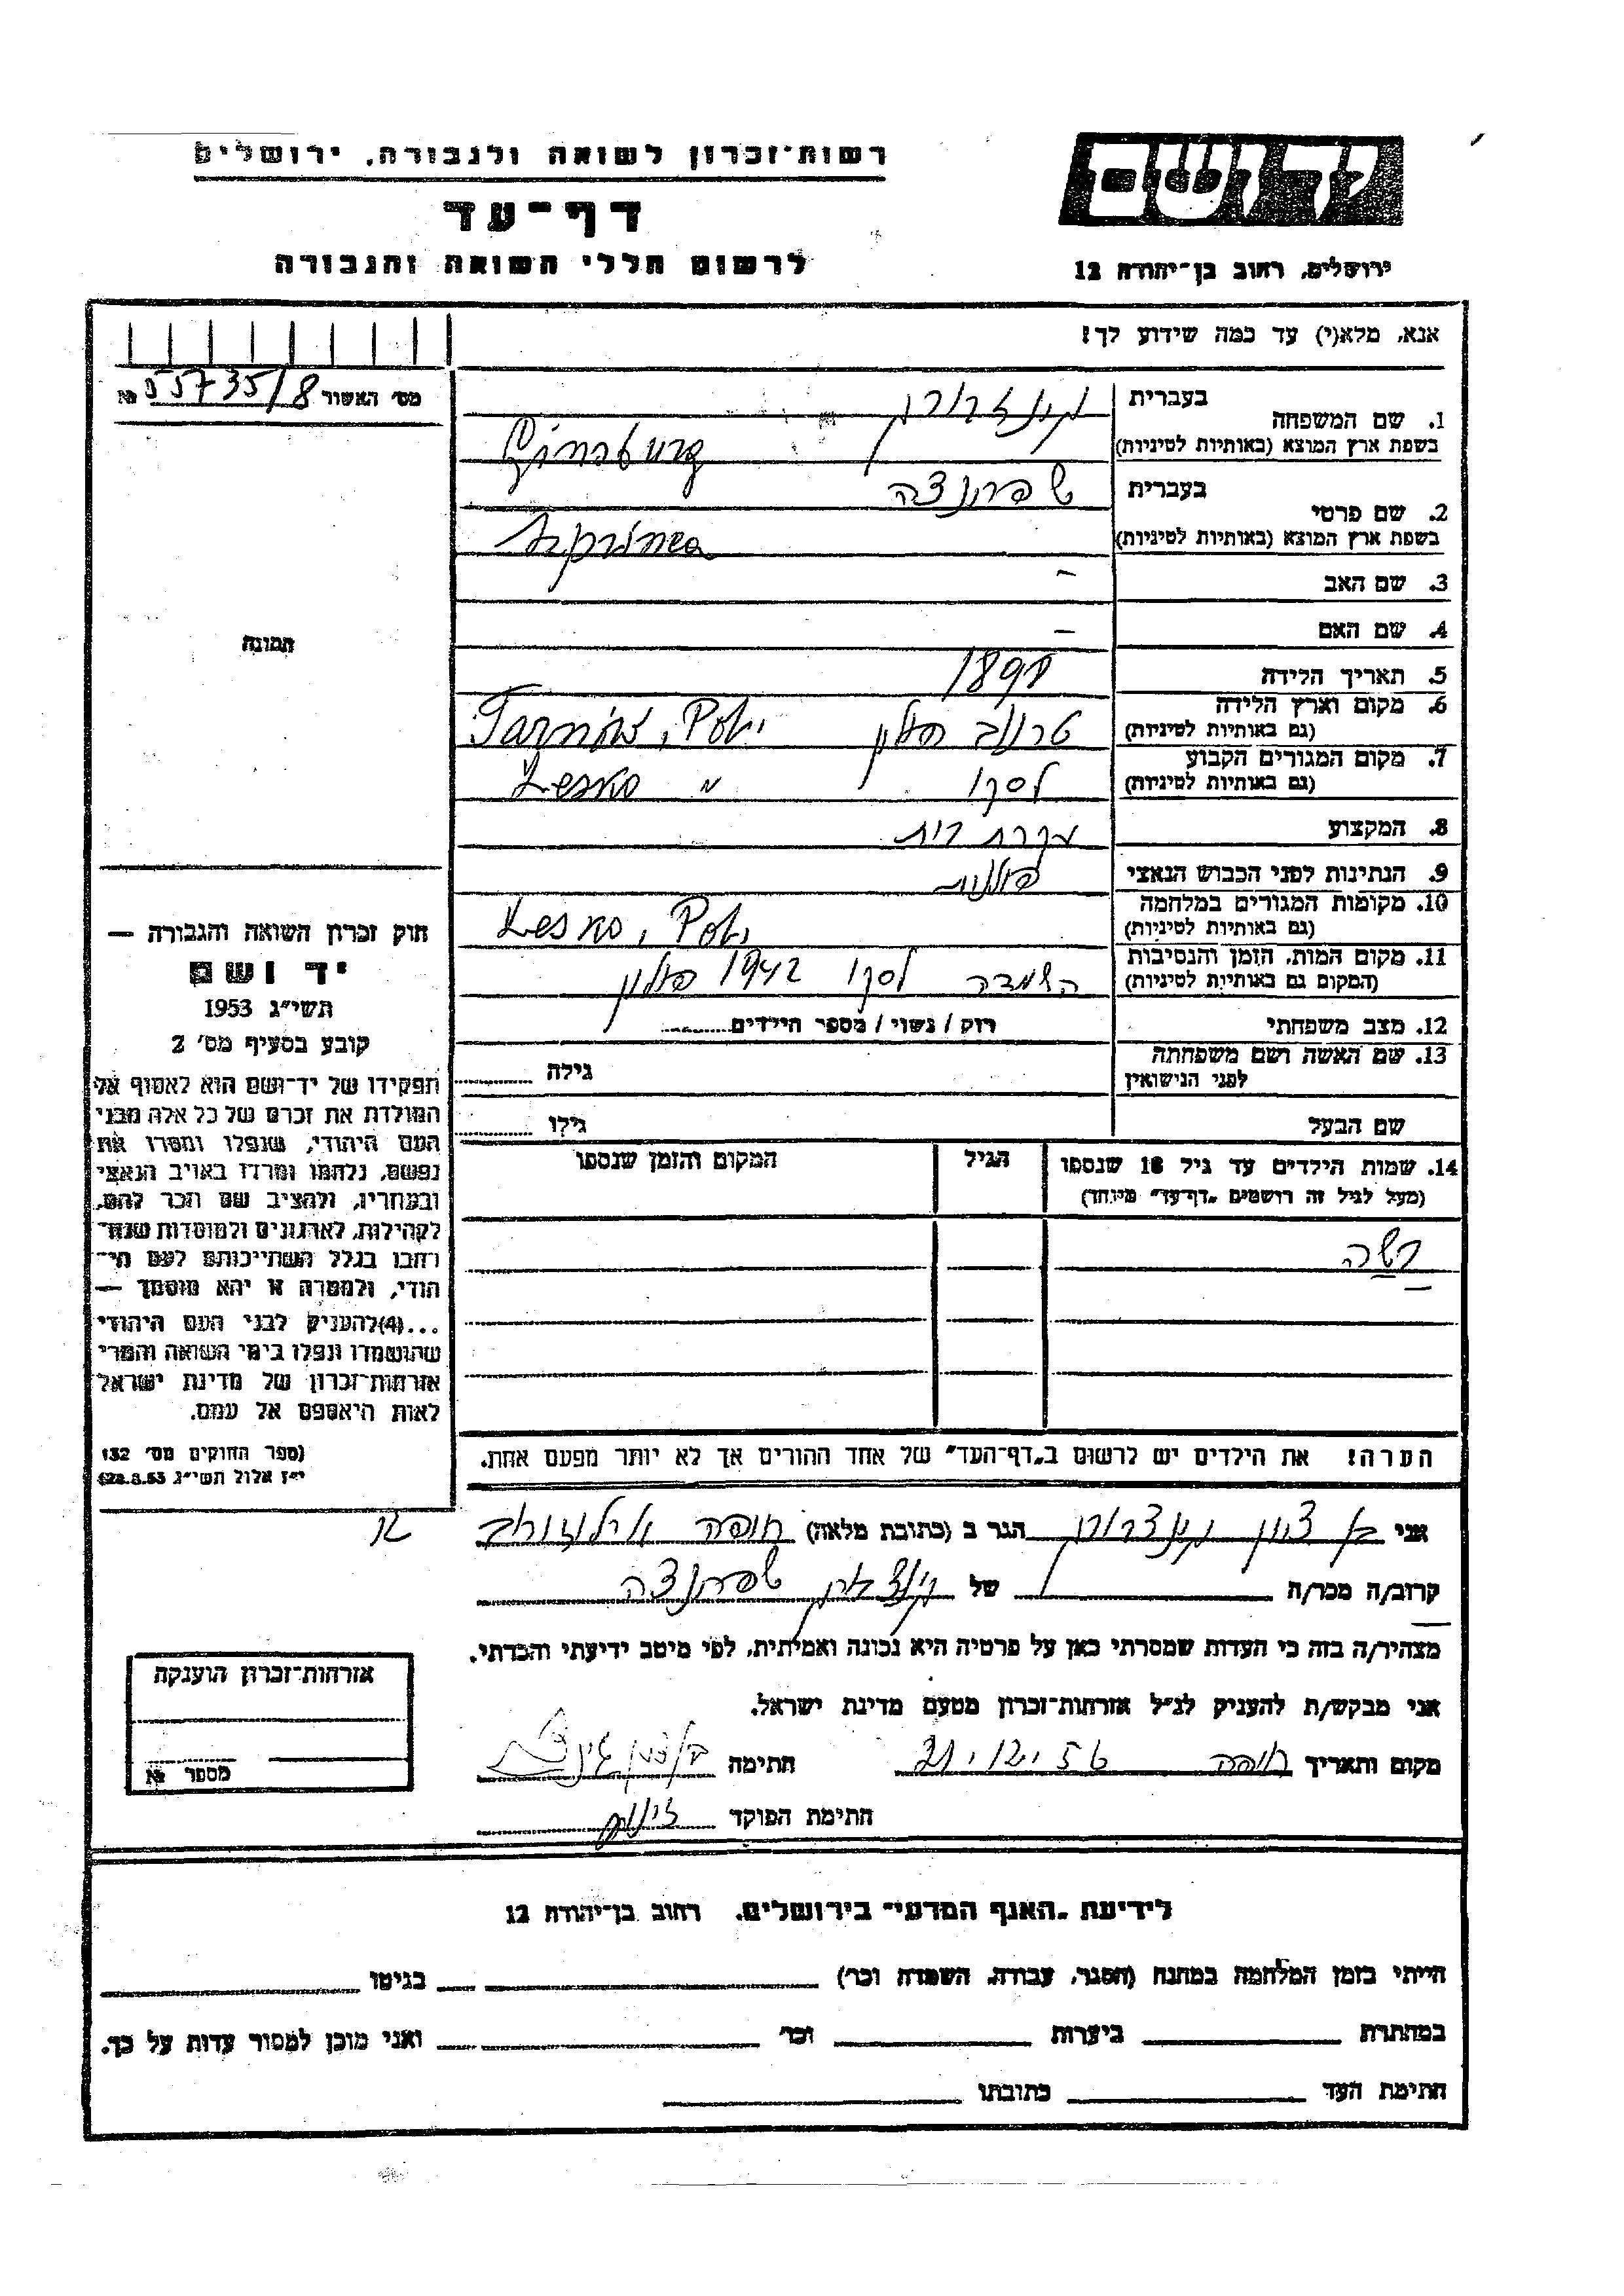 רשות־זכרון לשואה ולגבורה, ירושלים
דף־עד
לרשום חללי השואה והגבורה
יד ושם
ירושלים, רחוב בן־יהודה 12
אנא, מלא(י) עד כמה שידוע לך!
מס׳ האשור 55735/8 №
תמונה
חוק זכרון השואה והגבורה —
יד ושם
תשי״ג 1953
קובע בסעיף מס׳ 2
תפקידו של יד־ושם הוא לאסוף אל
המולדת את זכרם של כל אלה מבני
העם היהודי, שנפלו ומסרו את
נפשם, נלחמו ומרדו באויב הנאצי
ובעוזריו, ולהציב שם וזכר להם,
לקהילות, לארגונים ולמוסדות שנח־
רבו בגלל השתייכותם לעם הי־
הודי, ולמטרה זו יהא מוסמך —
...(4)להעניק לבני העם היהודי
שהושמדו ונפלו בימי השואה והמרי
אזרחות־זכרון של מדינת ישראל
לאות היאספם אל עמם.
(ספר החוקים מס׳ 132
י״ז אלול תשי״ג 28.8.53)
1. שם המשפחה בעברית גינזבורג
בשפת ארץ המוצא (באותיות לטיניות) Ginsburg
2. שם פרטי בעברית שפרינצה
בשפת ארץ המוצא (באותיות לטיניות) Szprinca
3. שם האב –
4. שם האם –
5. תאריך הלידה
6. מקום וארץ הלידה (גם באותיות לטיניות) טרנוב פולין Tarnów, Pol.
7. מקום המגורים הקבוע (גם באותיות לטיניות) לסקו Lesko "
8. המקצוע עקרת בית
9. הנתינות לפני הכבוש הנאצי פולנית
10. מקומות המגורים במלחמה (גם באותיות לטיניות) Lesko, Pol.
11. מקום המות, הזמן והנסיבות (המקום גם באותיות לטיניות) השמדה לסקו 1942 פולין
12. מצב משפחתי רוק / נשוי / מספר הילדים
13. שם האשה ושם משפחתה לפני הנישואין גילה
שם הבעל גילו
14. שמות הילדים עד גיל 18 שנספו הגיל המקום והזמן שנספו
(מעל לגיל זה רושמים „דף־עד״ מיוחד)
הערה! את הילדים יש לרשום ב„דף־העד״ של אחד ההורים אך לא יותר מפעם אחת.
אני בן ציון גינצבורג הגר ב (כתובת מלאה) חיפה ארלוזורוב
קרוב/ה מכר/ה של גינצבורג שפרינצה
מצהיר/ה בזה כי העדות שמסרתי כאן על פרטיה היא נכונה ואמיתית, לפי מיטב ידיעתי והכרתי.
אני מבקש/ת להעניק לנ״ל אזרחות־זכרון מטעם מדינת ישראל.
מקום ותאריך חיפה 21.12.56 חתימה
חתימת הפוקד
אזרחות־זכרון הוענקה
מספר №
לידיעת „האגף המדעי״ בירושלים, רחוב בן־יהודה 12
הייתי בזמן המלחמה במחנה (הסגר, עבודה, השמדה וכו׳) בגיטו
במחתרת ביערות וכו׳ ואני מוכן למסור עדות על כך.
חתימת העד כתובתו